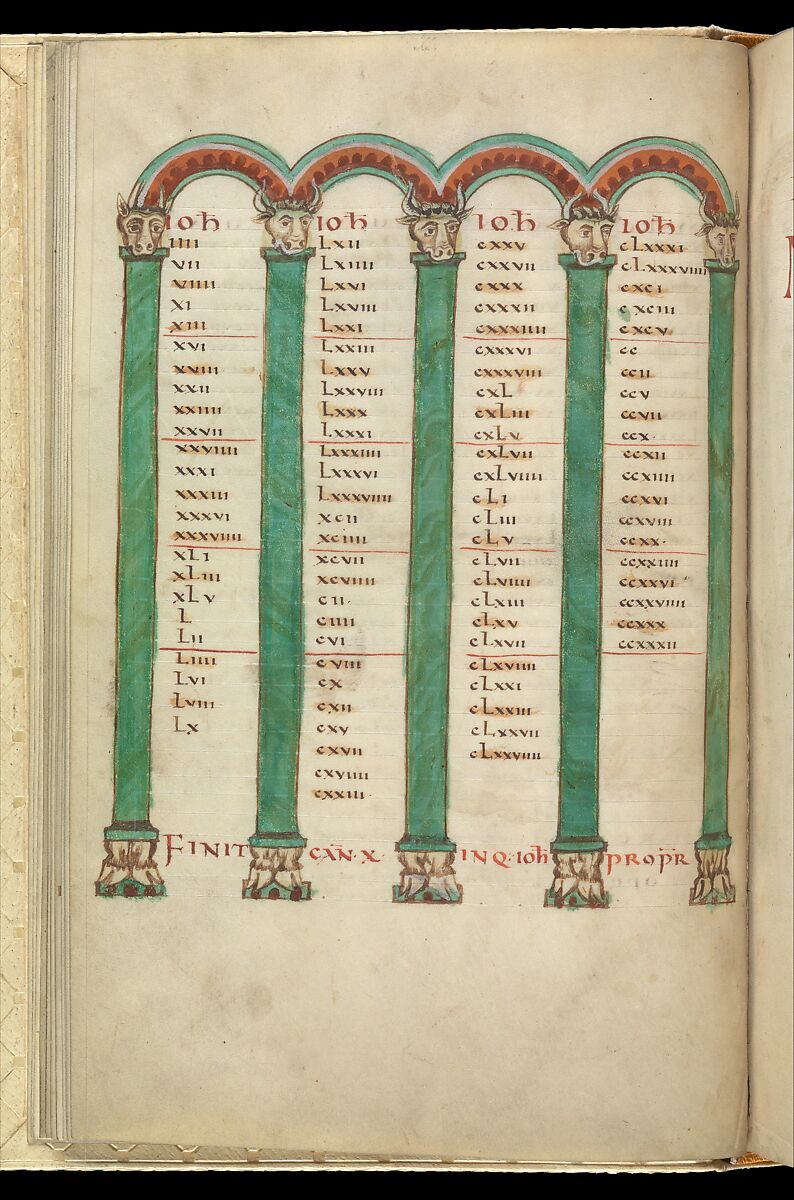 ioħ
iiii
vii
viiii
xi
xiii
xvi
xviii
xxii
xxiiii
xxvii
xxviiii
xxxi
xxxiii
xxxvi
xxxviiii
xLi
xLiii
xLv
L
Lii
Liiii
Lvi
Lviii
Lx
ioħ
Lxii
Lxiiii
Lxvi
Lxviii
Lxxi
Lxxiii
Lxxv
Lxxviii
Lxxx
Lxxxi
Lxxxiiii
Lxxxvi
Lxxxviiii
xcii
xciiii
xcvii
xcviiii
cii·
ciiii
cvi
cviii
cx
cxii
cxv
cxvii
cxviiii
cxxiii·
ioħ
cxxv
cxxvii
cxxx
cxxxii
cxxxiiii
cxxxvi
cxxxviii
cxL
cxLiii
cxLv
cxLvii
cxLviiii
cLi
cLiii
cLv
cLvii
cLviiii
cLxiii
cLxv
cLxvii
cLxviiii
cLxxi
cLxxiii
cLxxvii
cLxxviiii
ioħ
cLxxxi
cLxxxviiii
cxci
cxciii
cxcv
cc
ccii
ccv
ccvii
ccx·
ccxii
ccxiiii
ccxvi
ccxviii
ccxx·
ccxxiiii
ccxxvi
ccxxviiii
ccxxx
ccxxxii
FINIT CAN̄·X· INQ·IOħ PROPR̄